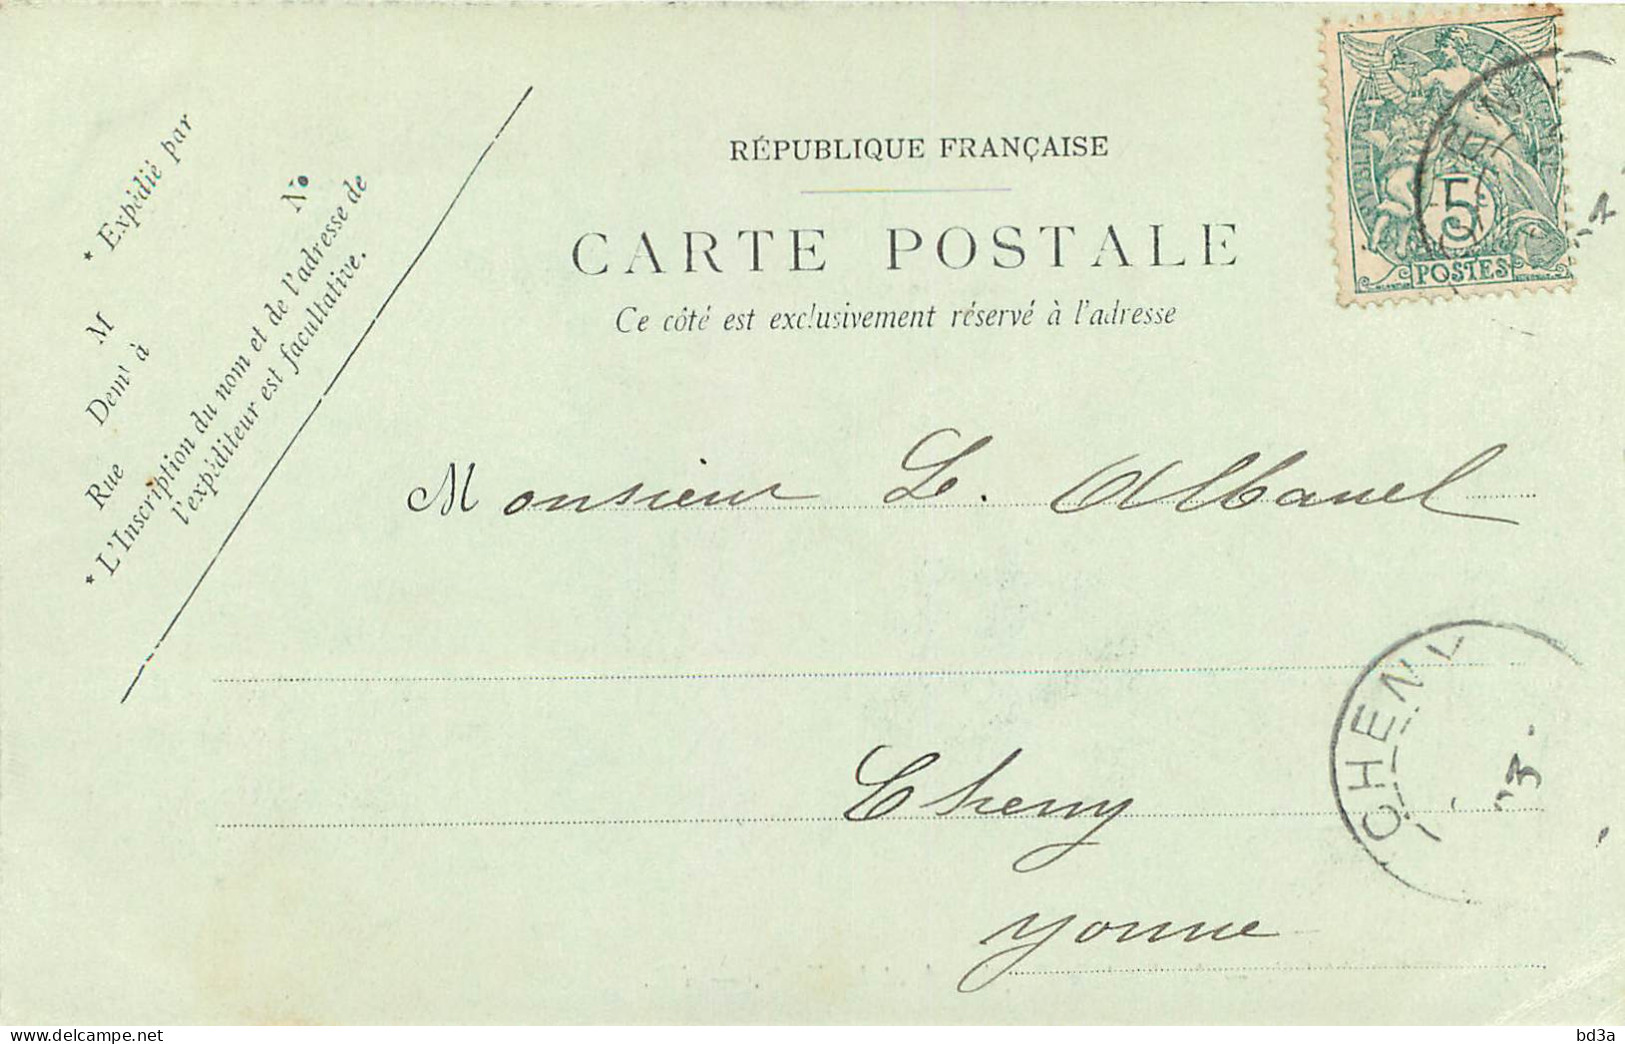 * Expédié par
M
Demt à
Rue
No
* L'Inscription du nom et de l'adresse de
l'expéditeur est facultative.
RÉPUBLIQUE FRANÇAISE
CARTE POSTALE
Ce côté est exclusivement réservé à l'adresse
5
POSTES
Monsieur L. Albanel
Cheny
Yonne
CHENY
03
delcampe.net
bd3a